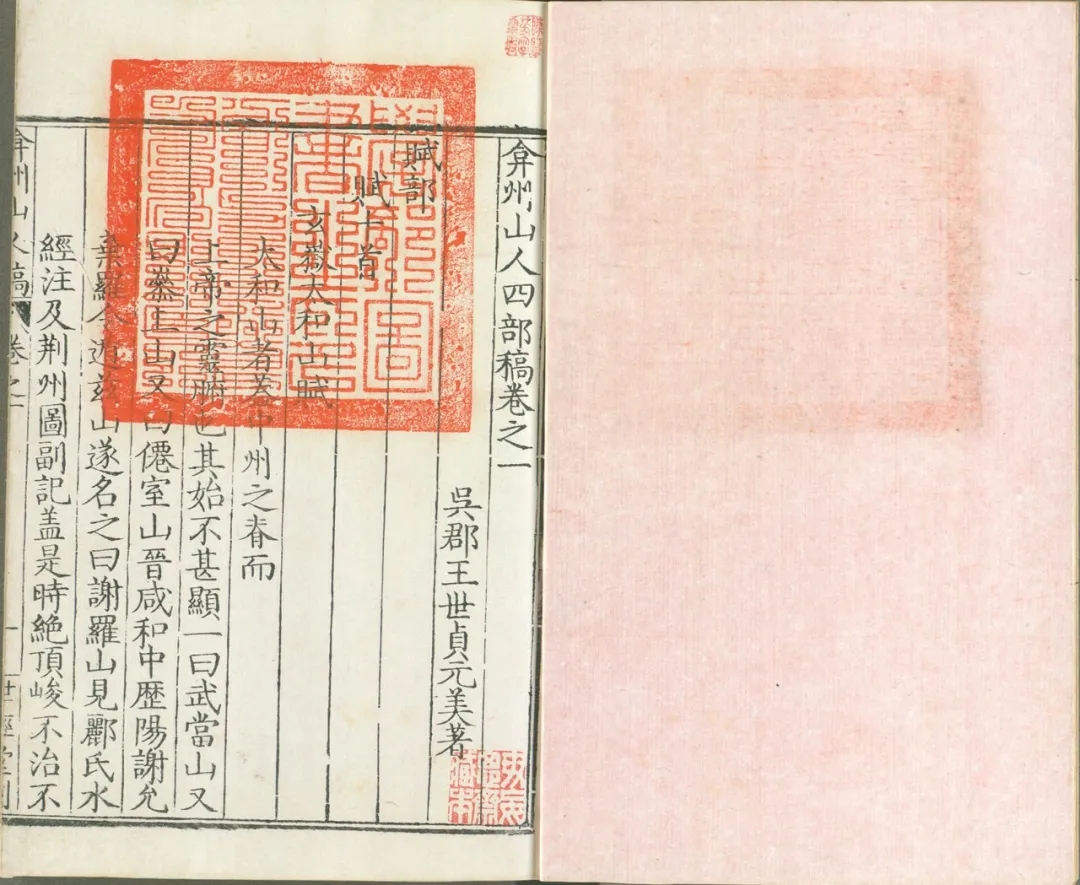 弇州山人四部稿卷之一
吳郡王世貞元美著
賦部
賦十首
玄嶽太和山賦
太和山者葢中州之春而
上帝之靈腑也其始不甚顯一曰武當山又
曰嵾上山又曰僊室山晉咸和中歷陽謝允
棄羅令遊茲山遂名之曰謝羅山見酈氏水
經注及荆州圖副記盖是時絶頂峻不治不
弇州山人稿 卷之一 一 世經堂刻